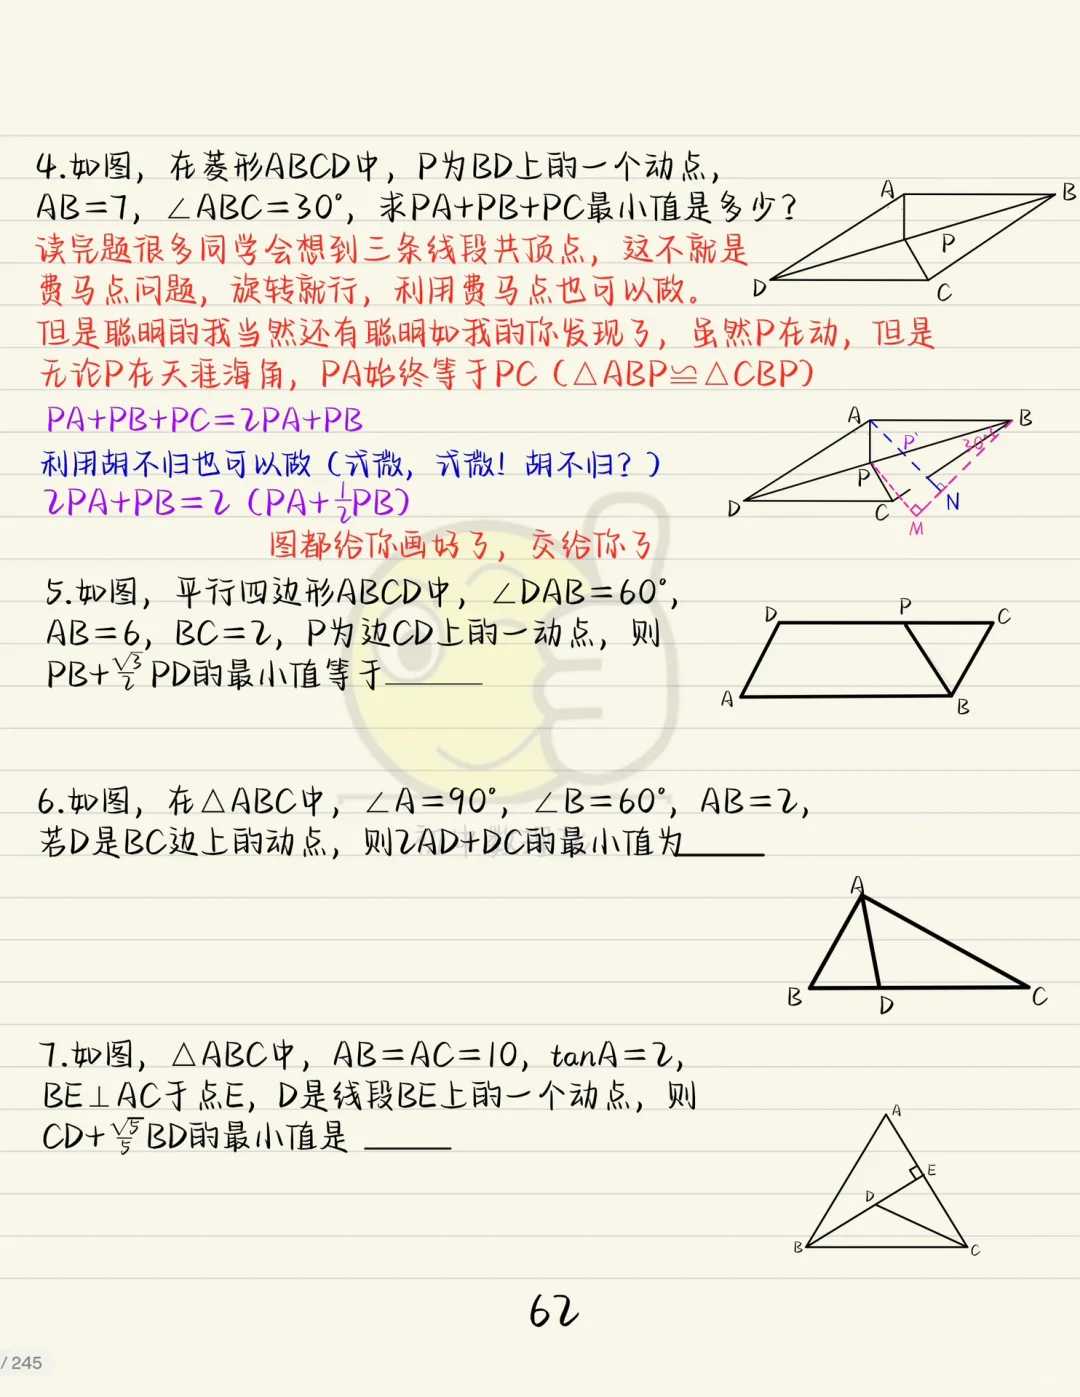 4.如图，在菱形ABCD中，P为BD上的一个动点，
AB=7，∠ABC=30°，求PA+PB+PC最小值是多少？
A
B
P
D
C
读完题很多同学会想到三条线段共顶点，这不就是
费马点问题，旋转就行，利用费马点也可以做。
但是聪明的我当然还有聪明如我的你发现了，虽然P在动，但是
无论P在天涯海角，PA始终等于PC（△ABP≌△CBP）
PA+PB+PC=2PA+PB
利用胡不归也可以做（式微，式微！胡不归？）
2PA+PB=2（PA+½PB）
图都给你画好了，交给你了
A
B
P'
30°
P
D
C
N
M
5.如图，平行四边形ABCD中，∠DAB=60°，
AB=6，BC=2，P为边CD上的一动点，则
PB+√3/2 PD的最小值等于______
D
P
C
A
B
6.如图，在△ABC中，∠A=90°，∠B=60°，AB=2，
若D是BC边上的动点，则2AD+DC的最小值为______
A
B
D
C
7.如图，△ABC中，AB=AC=10，tanA=2，
BE⊥AC于点E，D是线段BE上的一个动点，则
CD+√5/5 BD的最小值是______
A
E
D
B
C
62
/ 245